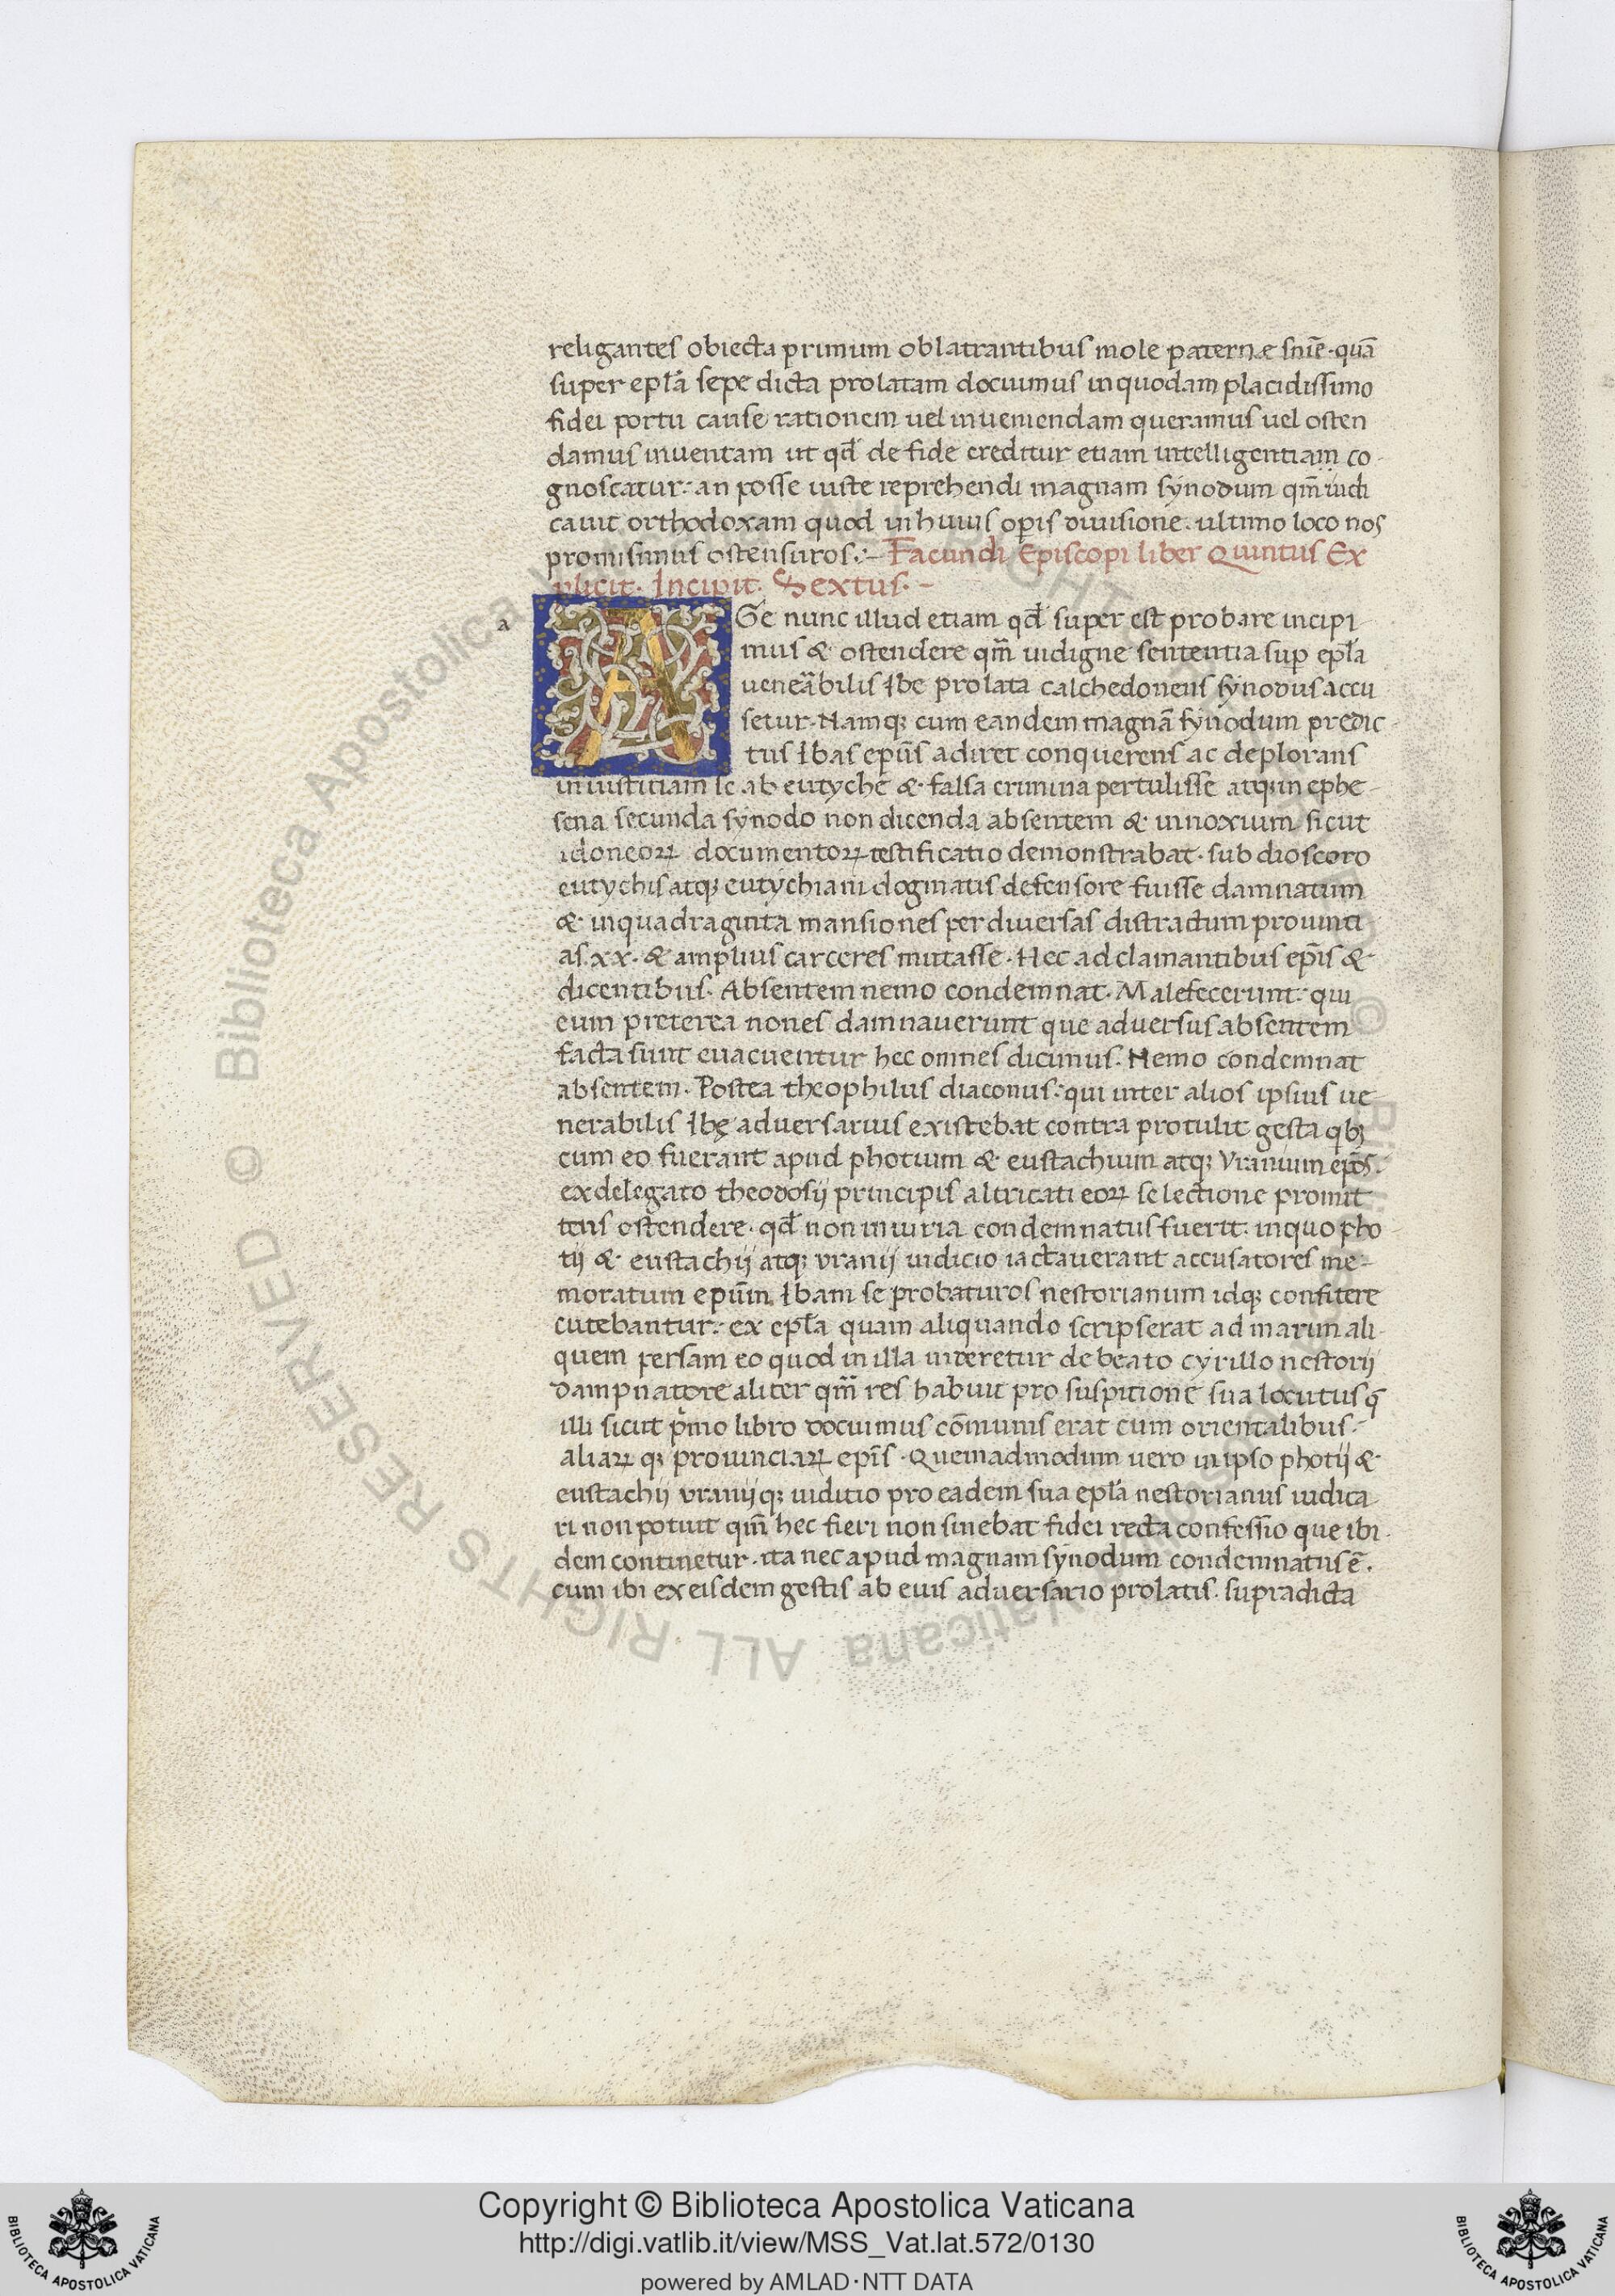 religantes obiecta primum oblatrantibus mole paternæ sn̄ie · quā
super epl̄a sepe dicta prolatam docuimus inquodam placidissimo
fidei portu cause rationem uel inueniendam queramus uel osten
damus inuentam ut qd̄ de fide creditur etiam intelligentiam co-
gnoscatur: an posse iuste reprehendi magnam synodum qm̄ iudi
cauit orthodoxam quod in huius operis diuisione ultimo loco nos
promisimus ostensuros :- Facundi Episcopi liber Quintus Ex
plicit · Incipit · Sextus · -
a
A Ge nunc illud etiam qd̄ super est probare incipi
mus & ostendere qm̄ indigne sententia sup epl̄a
ueneābilis ibe prolata calchedonens synodus accu
setur · Namq; cum eandem magnā synodum predic-
tus ibas ep̄us adiret conquerens ac deplorans
iniustitiam se ab eutyche & falsa crimina pertulisse atq; in ephe-
sena secunda synodo non dicenda absentem & innoxium sicut
idoneoꝝ documentoꝝ testificatio demonstrabat · sub dioscoro
eutychis atq; eutychiani dogmatis defensore fuisse damnatum
& inquadraginta mansiones per diuersas distractum prouinti
as · xx · & amplius carceres mutasse · Hec adclamantibus ep̄is &
dicentibus · Absentem nemo condemnat · Malefecerunt: qui
eum preterea nones damnauerunt que aduersus absentem
facta sunt euacuentur hec omnes dicimus · Nemo condemnat
absentem · Postea theophilus diaconus: qui inter alios ipsius ue
nerabilis ibę aduersarius existebat contra protulit gesta qb;
cum eo fuerant apud photium & eustachium atq; Vranium ep̄os ·
ex delegato theodosij principis altricati eoꝝ se lectione promit
tens ostendere · qd̄ non iniuria condemnatus fuerit: inquo pho-
tij & eustachij atq; vranij iudicio iactauerant accusatores me-
moratum ep̄um ibam se probaturos nestorianum idq; confitere
cutebantur: ex epl̄a quam aliquando scripserat ad marim ali-
quem persam eo quod in illa uiteretur de beato cyrillo nestorij
dampnatore aliter qm̄ res habuit pro suspitione sua locutus q̄
illi sicut pͥmo libro docuimus cōmunis erat cum orientalibus -
aliaꝝ q; prouinciaꝝ ep̄is · Quemadmodum uero in ipso photij &
eustachij vranij q; iuditio pro eadem sua epl̄a nestorianus iudica
ri non potuit qm̄ hec fieri non sinebat fidei recta confessio que ibi-
dem continetur · ita nec apud magnam synodum condemnatus ē ·
cum ibi ex eisdem gestis ab eius aduersario prolatis · supradicta
© Biblioteca Apostolica Vaticana ALL RIGHTS RESERVED
Copyright © Biblioteca Apostolica Vaticana
http://digi.vatlib.it/view/MSS_Vat.lat.572/0130
powered by AMLAD · NTT DATA
BIBLIOTECA APOSTOLICA VATICANA
BIBLIOTECA APOSTOLICA VATICANA